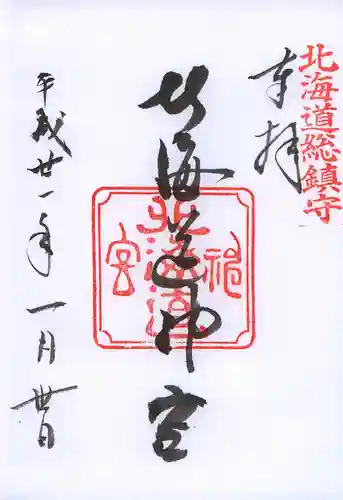 北海道総鎮守
奉拝
北海道神宮
北海道神宮
平成廿一年一月廿日